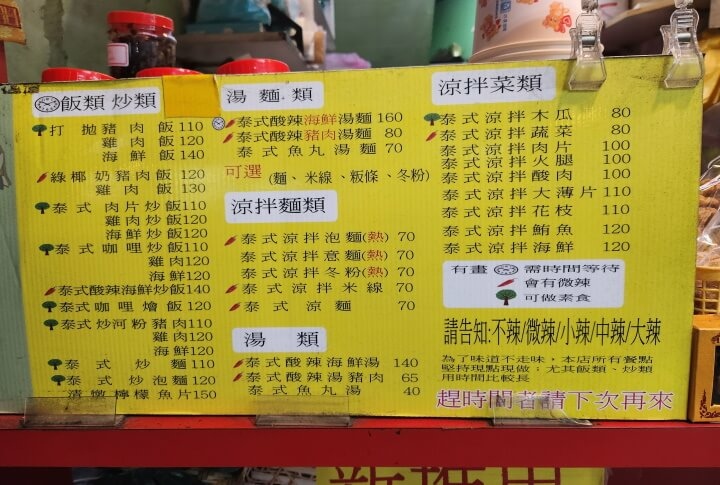 飯類 炒類
打拋豬肉飯110
雞肉飯120
海鮮飯140
綠椰奶豬肉飯120
雞肉飯130
泰式肉片炒飯110
雞肉炒飯120
海鮮炒飯120
泰式咖哩炒飯110
雞肉120
海鮮120
泰式酸辣海鮮炒飯140
泰式咖哩燴飯120
泰式炒河粉豬肉110
雞肉120
海鮮120
泰式炒麵110
泰式炒泡麵120
清燉檸檬魚片150
湯麵類
泰式酸辣海鮮湯麵160
泰式酸辣豬肉湯麵 80
泰式魚丸湯麵 70
可選 (麵、米線、粄條、冬粉)
涼拌麵類
泰式涼拌泡麵(熱) 70
泰式涼拌意麵(熱) 70
泰式涼拌冬粉(熱) 70
泰式涼拌米線 70
泰式涼麵 70
湯類
泰式酸辣海鮮湯 140
泰式酸辣湯豬肉 65
泰式魚丸湯 40
涼拌菜類
泰式涼拌木瓜 80
泰式涼拌蔬菜 80
泰式涼拌肉片 100
泰式涼拌火腿 100
泰式涼拌酸肉 100
泰式涼拌大薄片 110
泰式涼拌花枝 110
泰式涼拌鮪魚 120
泰式涼拌海鮮 120
有畫 需時間等待
會有微辣
可做素食
請告知:不辣/微辣/小辣/中辣/大辣
為了味道不走味，本店所有餐點
堅持現點現做；尤其飯類、炒類
用時間比較長
趕時間者請下次再來